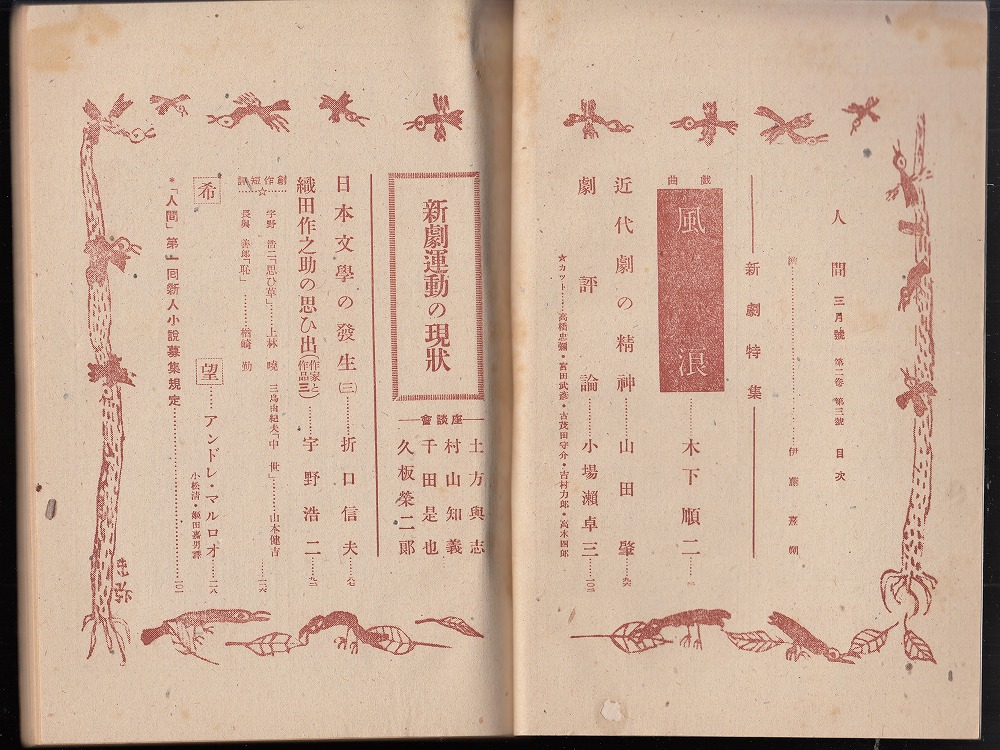 人間 三月號 第二卷 第三號 目次
伊藤憙朔
新劇特集
戯曲
風浪……木下順二……
近代劇の精神……山田肇……
劇評論……小場瀬卓三……
☆カット……高橋忠彌・宮田武彦・古茂田守介・古村力郎・高木四郎
新劇運動の現狀
座談會
土方與志
村山知義
千田是也
久板榮二郞
日本文學の發生(三)……折口信夫……
織田作之助の思ひ出(作家と作品三)……宇野浩二……
創作短評
☆
宇野浩二「思ひ草」……上林曉
三島由紀夫「中世」……山本健吉
長與善郎「恥」……楢崎勤
希望……アンドレ・マルロオ……
小松清・姬田嘉男譯
*「人間」第一囘新人小說募集規定……